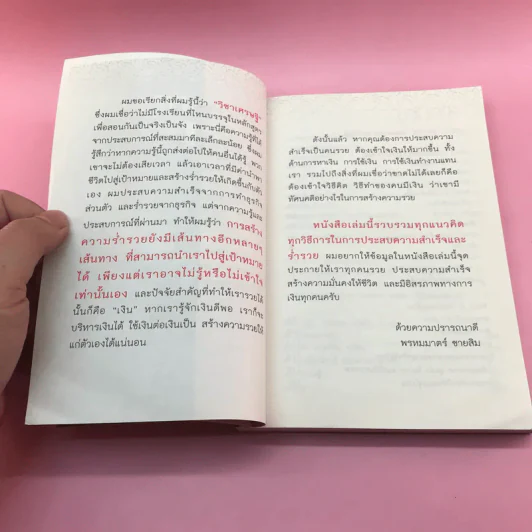 ผมขอเรียกสิ่งที่ผมรู้นี้ว่า "วิชาเศรษฐี"
ซึ่งผมเชื่อว่าไม่มีโรงเรียนที่ไหนบรรจุในหลักสูตร
เพื่อสอนกันเป็นจริงเป็นจัง เพราะนี่คือความรู้ที่ได้
จากประสบการณ์ที่สะสมมาทีละเล็กละน้อย ซึ่งผม
รู้สึกว่าหากความรู้นี้ถูกส่งต่อไปให้คนอื่นได้รู้ พวก
เขาจะไม่ต้องเสียเวลา แล้วเอาเวลาที่มีค่านำพา
ชีวิตไปสู่เป้าหมายและสร้างร่ำรวยให้เกิดขึ้นกับตัว
เอง ผมประสบความสำเร็จจากการทำธุรกิจ
ส่วนตัว และร่ำรวยจากธุรกิจ แต่จากความรู้และ
ประสบการณ์ที่ผ่านมา ทำให้ผมรู้ว่า การสร้าง
ความร่ำรวยยังมีเส้นทางอีกหลายๆ
เส้นทาง ที่สามารถนำเราไปสู่เป้าหมาย
ได้ เพียงแต่เราอาจไม่รู้หรือไม่เข้าใจ
เท่านั้นเอง และปัจจัยสำคัญที่ทำให้เรารวยได้
นั้นก็คือ "เงิน" หากเรารู้จักเงินดีพอ เราก็จะ
บริหารเงินได้ ใช้เงินต่อเงินเป็น สร้างความรวยให้
แก่ตัวเองได้แน่นอน
ดังนั้นแล้ว หากคุณต้องการประสบความ
สำเร็จเป็นคนรวย ต้องเข้าใจเงินให้มากขึ้น ทั้ง
ด้านการหาเงิน การใช้เงิน การใช้เงินทำงานแทน
เรา รวมไปถึงสิ่งที่ผมเชื่อว่าขาดไม่ได้เลยก็คือ
ต้องเข้าใจวิธีคิด วิธีทำของคนมีเงิน ว่าเขามี
ทัศนคติอย่างไรในการสร้างความรวย
หนังสือเล่มนี้รวบรวมทุกแนวคิด
ทุกวิธีการในการประสบความสำเร็จและ
ร่ำรวย ผมอยากให้ข้อมูลในหนังสือเล่มนี้จุด
ประกายให้เราทุกคนรวย ประสบความสำเร็จ
สร้างความมั่นคงให้ชีวิต และมีอิสรภาพทางการ
เงินทุกคนครับ
ด้วยความปรารถนาดี
พรหมมาตร์ ชายสิม